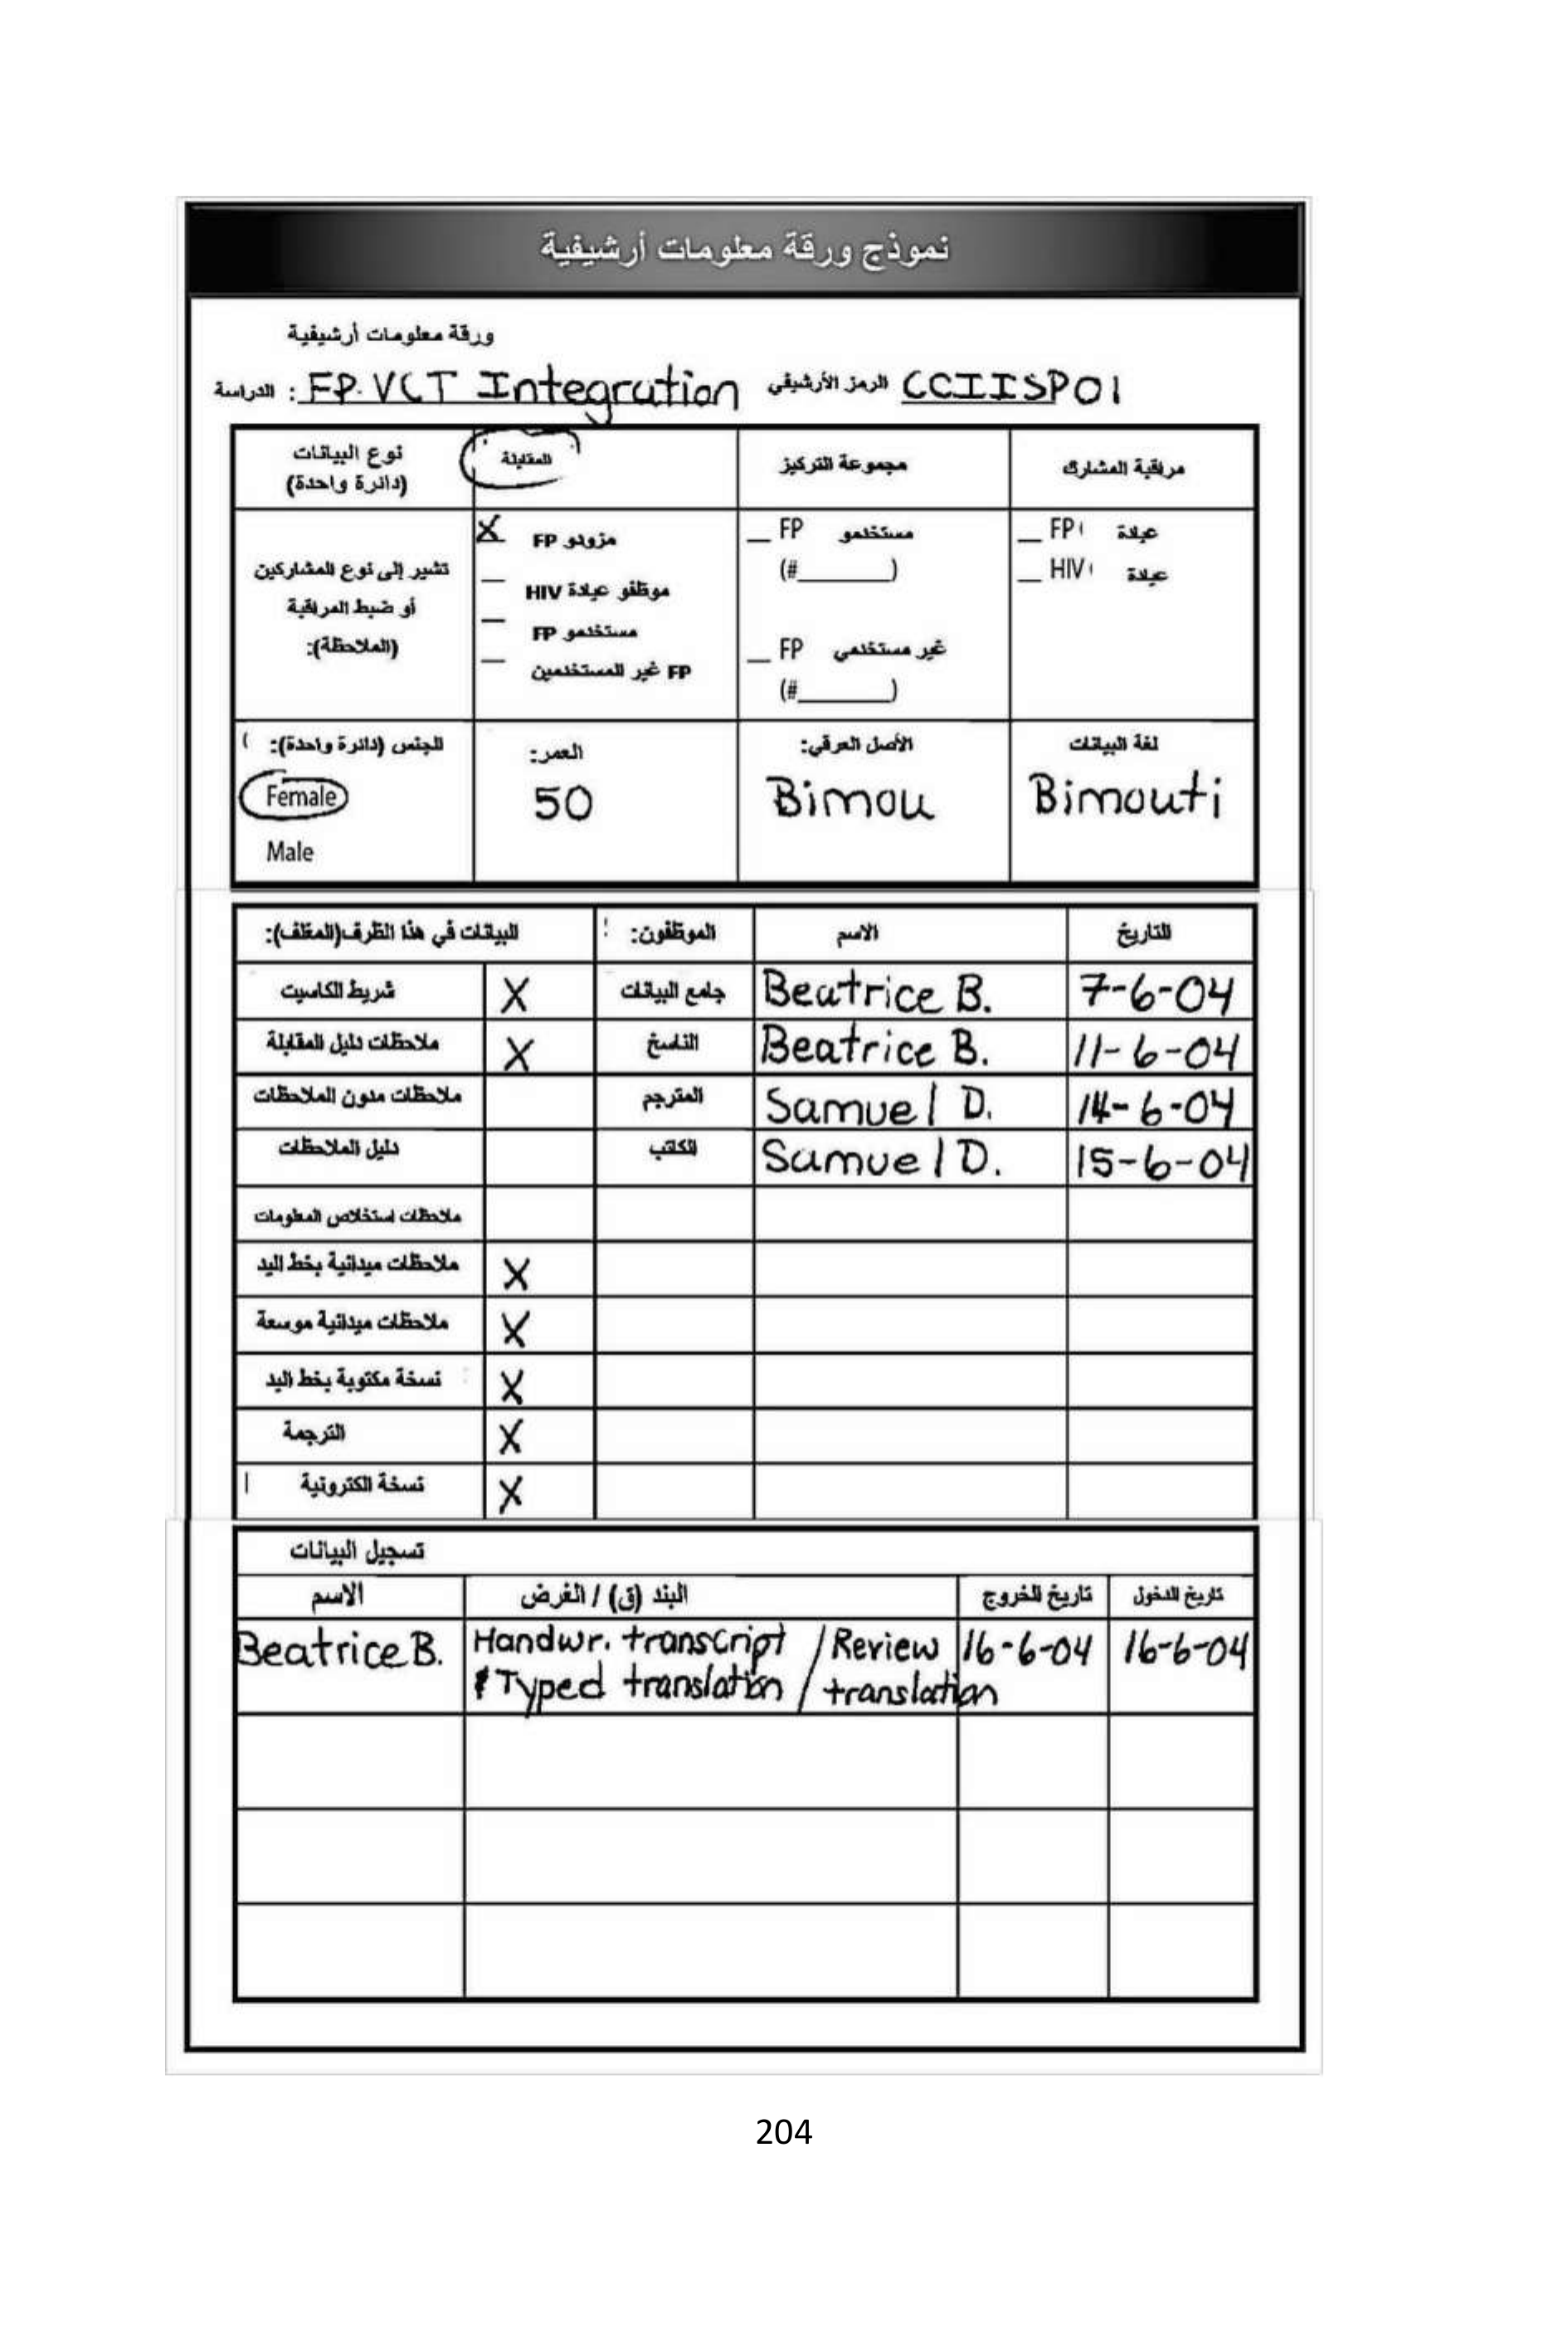 نموذج ورقة معلومات أرشيفية
ورقة معلومات أرشيفية
الدراسة : FP.VCT Integration الرمز الأرشيفي CCIISP01
نوع البيانات (دائرة واحدة)
المقابلة
مجموعة التركيز
مراقبة المشارك
تشير إلى نوع المشاركين
أو ضبط المراقبة
(الملاحظة):
X مزودو FP
__ موظفو عيادة HIV
__ مستخدمو FP
__ FP غير المستخدمين
__ FP مستخدمو
(#______)
__ FP غير مستخدمي
(#______)
__ FP عيادة
__ HIV عيادة
الجنس (دائرة واحدة):
Female
Male
العمر:
50
الأصل العرقي:
Bimou
لغة البيانات
Bimouti
البيانات في هذا الظرف(المغلف): الموظفون: الاسم التاريخ
شريط الكاسيت X جامع البيانات Beatrice B. 7-6-04
ملاحظات دليل المقابلة X الناسخ Beatrice B. 11-6-04
ملاحظات مدون الملاحظات المترجم Samuel D. 14-6-04
دليل الملاحظات الكاتب Samuel D. 15-6-04
ملاحظات استخلاص المعلومات
ملاحظات ميدانية بخط اليد X
ملاحظات ميدانية موسعة X
نسخة مكتوبة بخط اليد X
الترجمة X
نسخة الكترونية X
تسجيل البيانات
الاسم البند (ق) / الغرض تاريخ الخروج تاريخ الدخول
Beatrice B. Handwr. transcript / Review 16-6-04 16-6-04
& Typed translation / translation
204